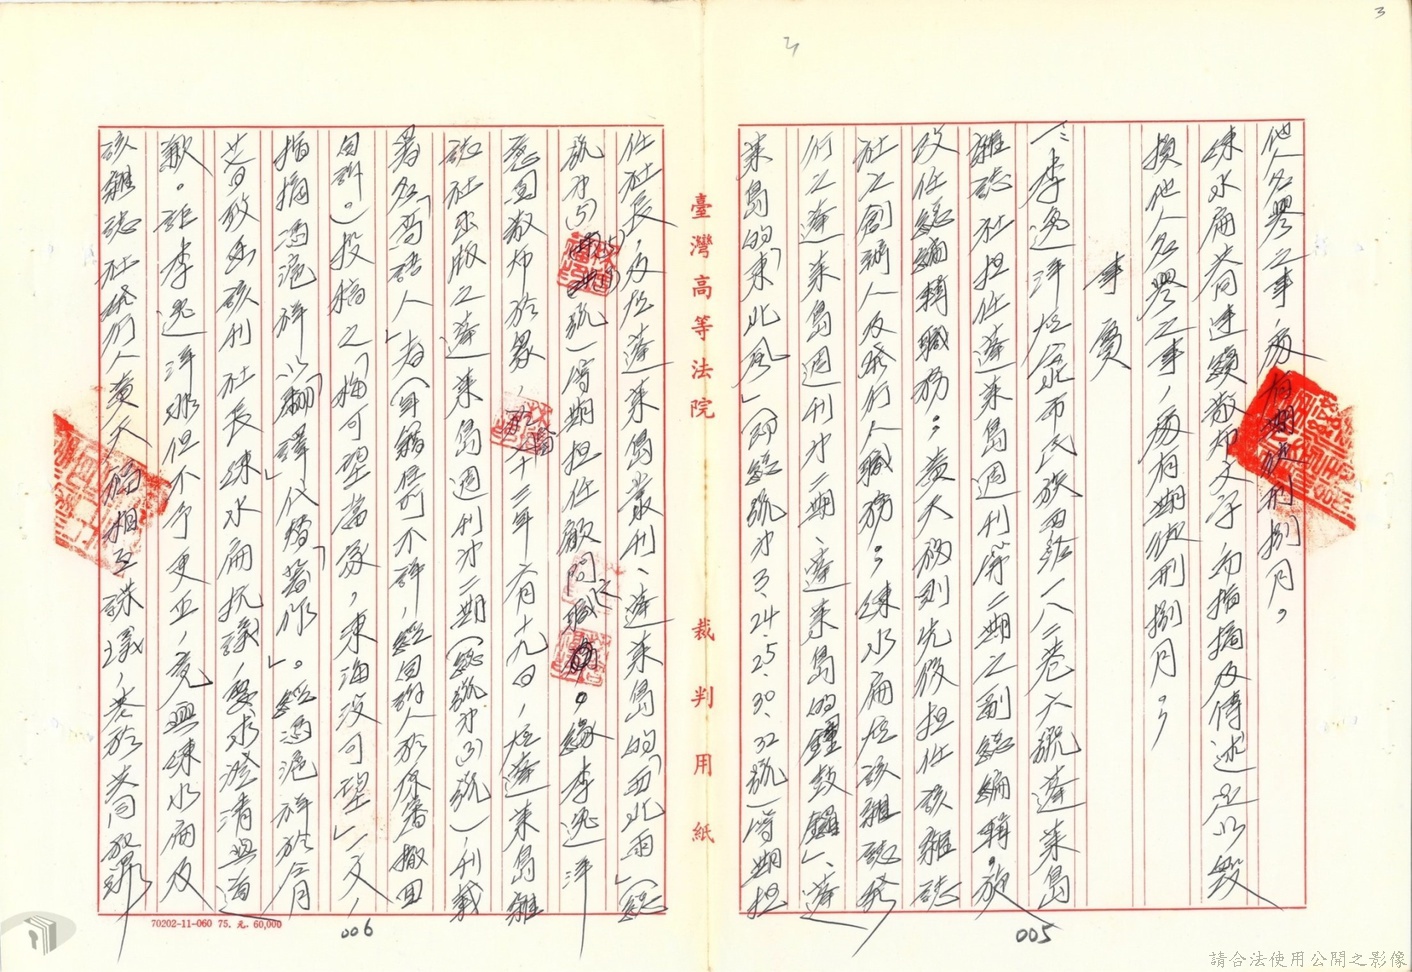 3
他人名譽之事，處有期徒刑捌月。
陳水扁共同連續散布文字，而指摘及傳述足以毀
損他人名譽之事，處有期徒刑捌月。
事實
一、李逸洋於台北市民族西路一八二巷六號蓬萊島
雜誌社担任蓬萊島週刊第二期之副總編輯。旋
改任總編輯職務。黃天福則先後担任該雜誌
社之創辦人及發行人職務。陳水扁於該雜誌發
行之蓬萊島週刊第二期、蓬萊島的「鐘鼓鑼」、蓬
萊島的「東北風」（即總號第3、24、25、30、32號）等期担
005
臺灣高等法院 裁判用紙
任社長，及於蓬萊島叢刊、蓬萊島的「西北雨」（總
號第(5) 號）等期担任顧問職務。緣李逸洋
意圖散布於眾，於七十三年六月十九日，於蓬萊島雜
誌社出版之蓬萊島週刊第二期（總號第(3)號），刊載
署名「高語人」者（年籍住所不詳，經自訴人於原審撤回
自訴。）投稿之「梅可望當家，東海沒可望」一文，
指摘馮滬祥以「翻譯」代替「著作」。經馮滬祥於同月
廿日致函該刊社長陳水扁抗議，要求澄清與道
歉。詎李逸洋非但不予更正，竟與陳水扁及
該雜誌社發行人黃天福相互謀議，基於共同犯罪
006
70202-11-060 75. 元. 60,000
請合法使用公開之影像